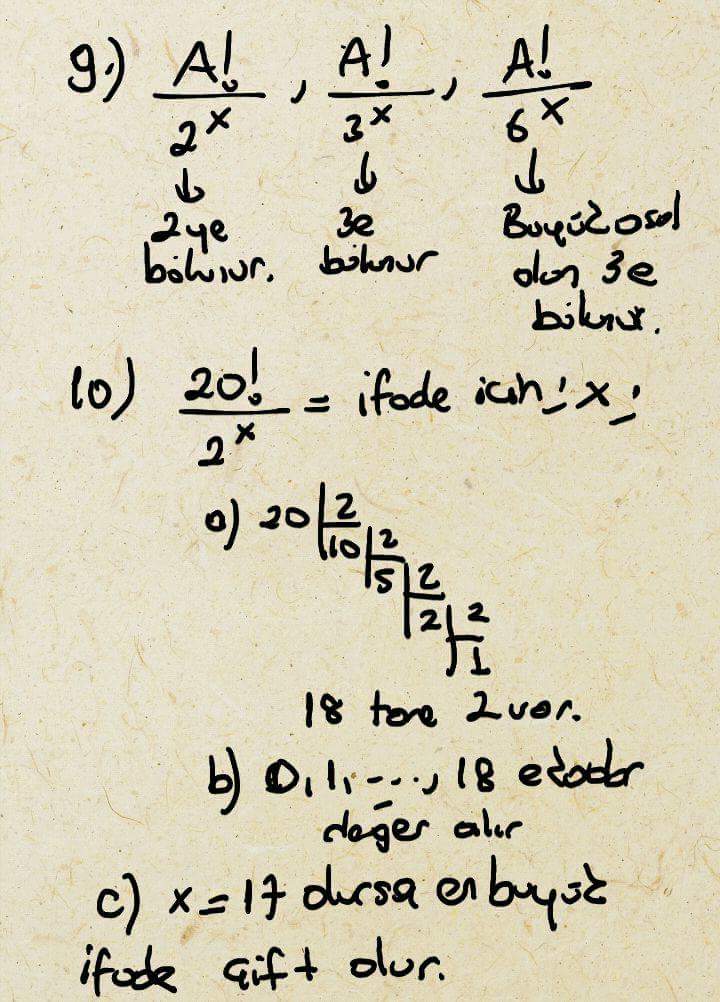 9.) A!/2^x , A!/3^x , A!/6^x
↓ ↓ ↓
2ye 3e Büyük asal
bölünür. bölünür olan 3e
bölünür.
10) 20!/2^x = ifade için ; x ;
a) 20 | 2
10 | 2
5 | 2
2 | 2
1
18 tane 2 var.
b) 0, 1, ---, 18 e kadar
değer alır
c) x = 17 olursa en büyük
ifade çift olur.